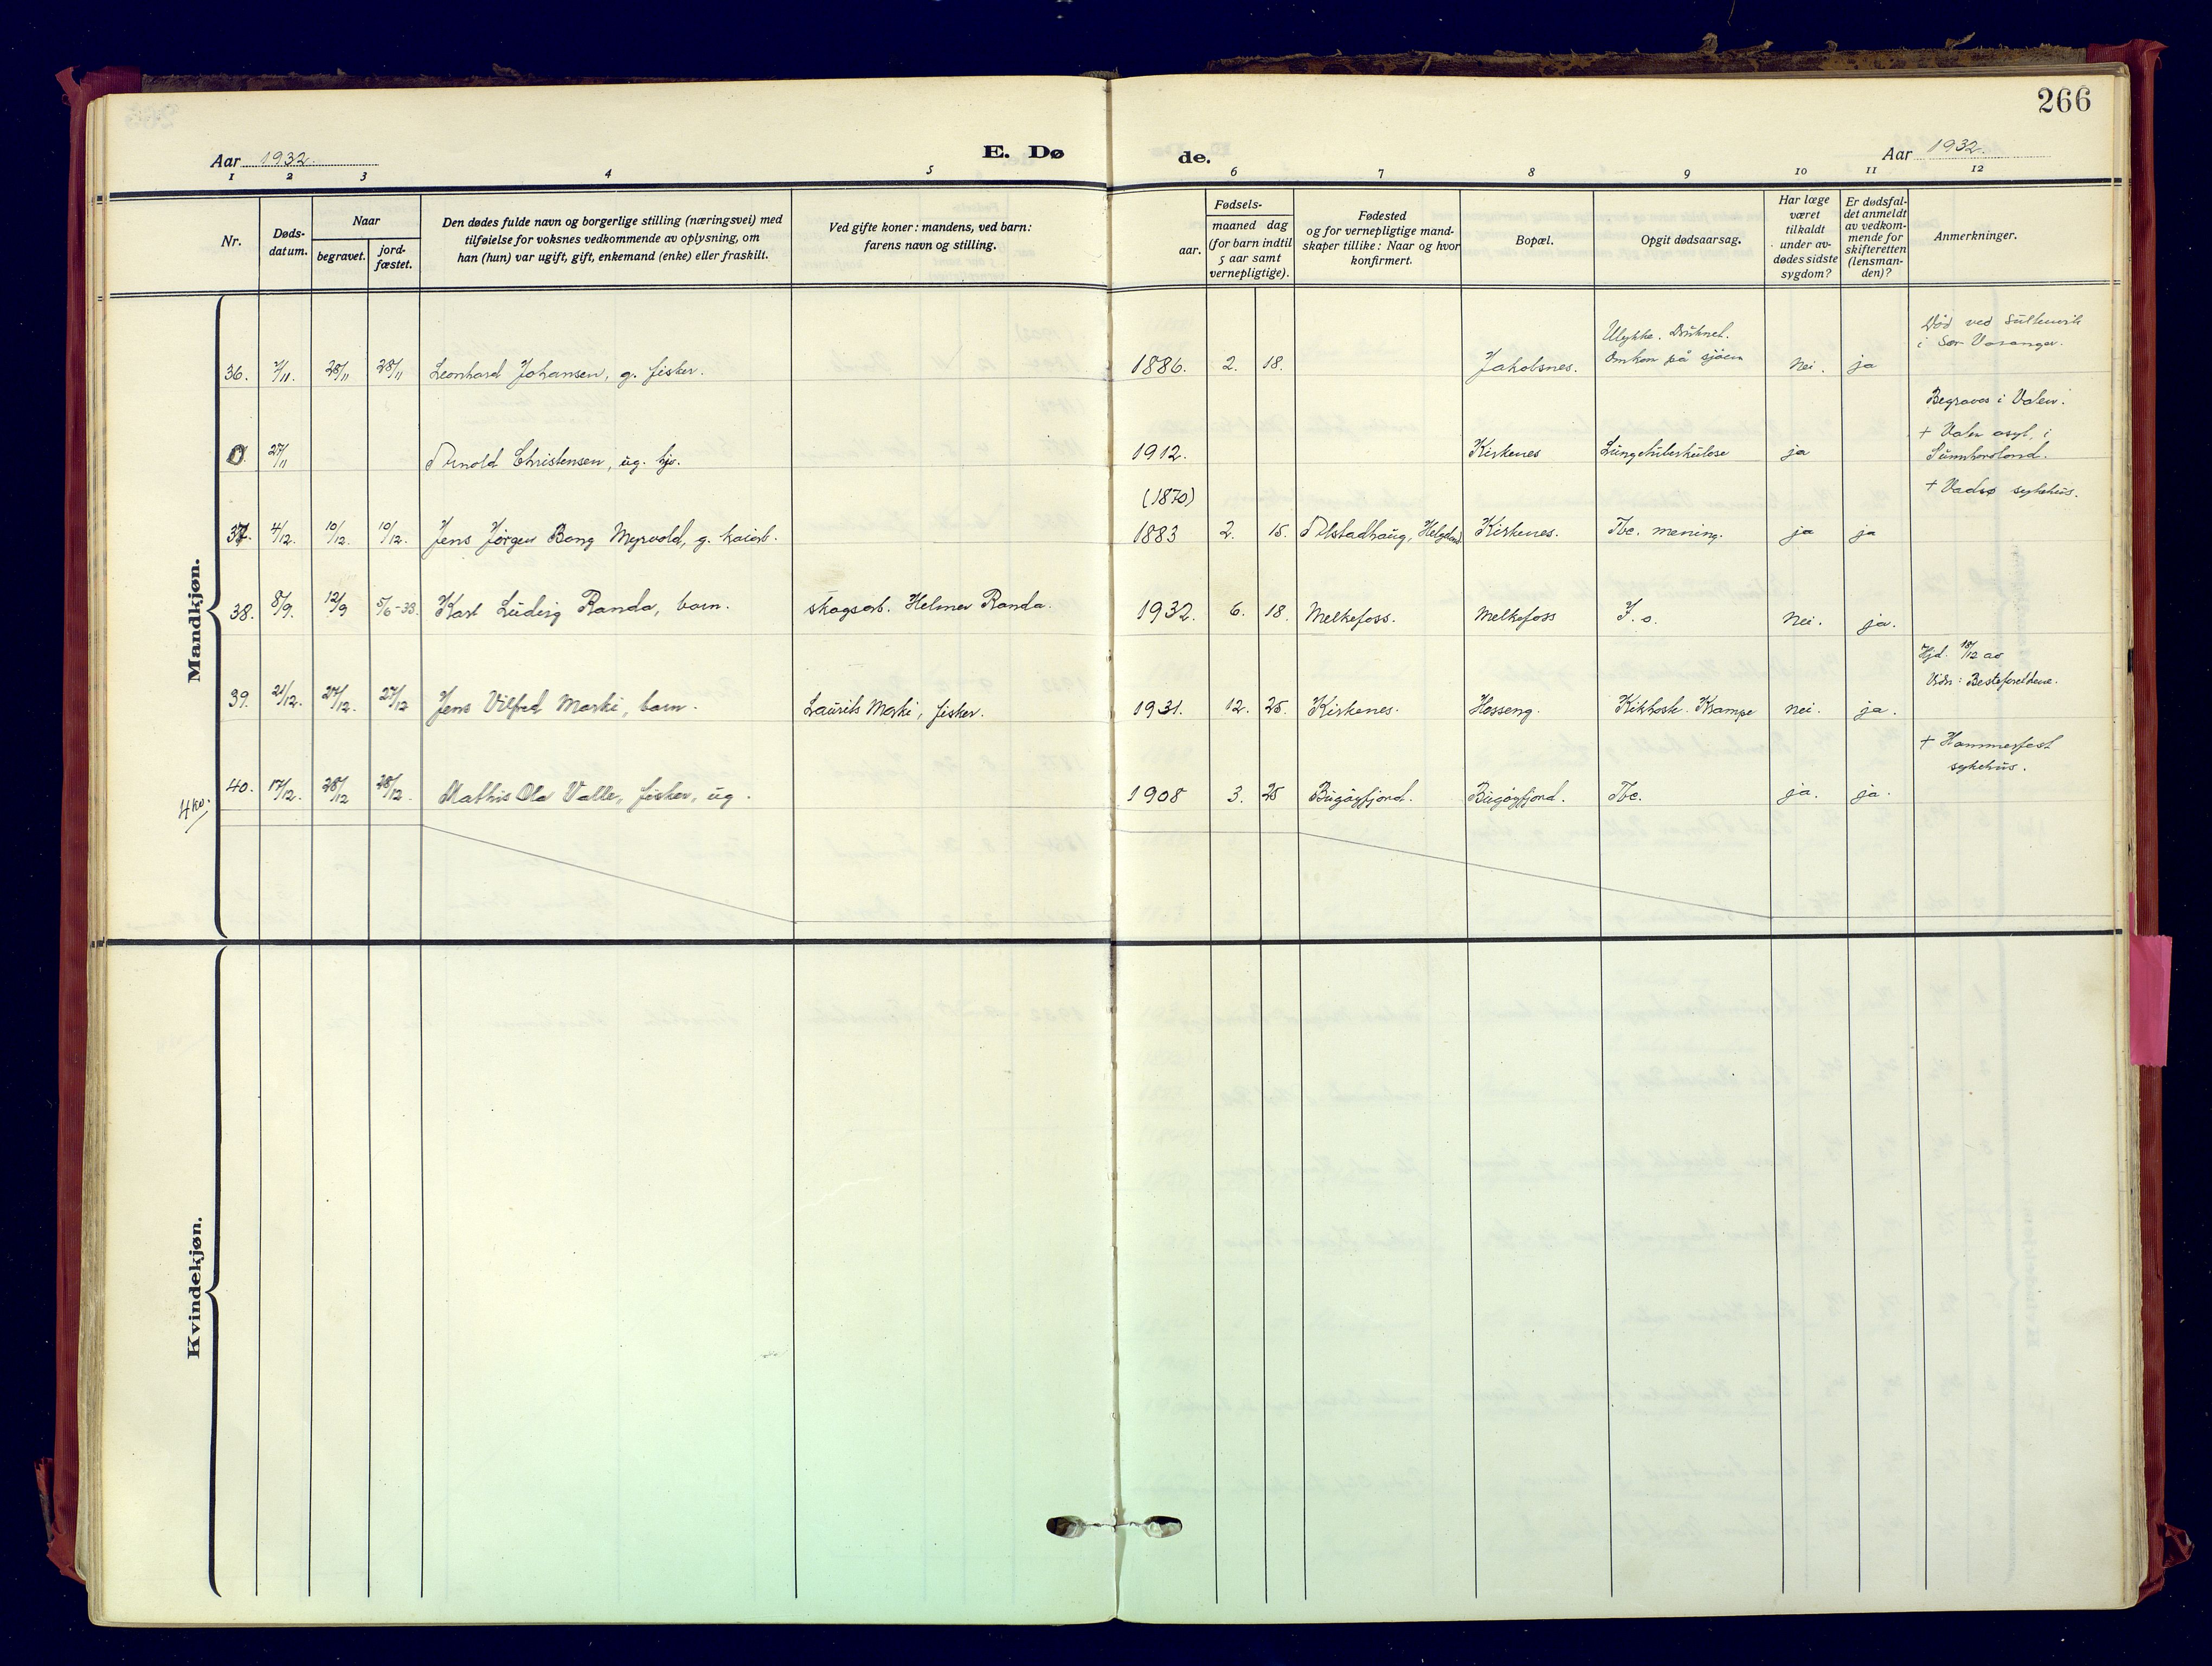 266
Aar 1932.
E. Dø
de.
Aar 1932.
1 2 3 4 5 6 7 8 9 10 11 12
Nr.
Døds-
datum.
Naar
begravet.
jord-
fæstet.
Den dødes fulde navn og borgerlige stilling (næringsvei) med
tilføielse for voksnes vedkommende av oplysning, om
han (hun) var ugift, gift, enkemand (enke) eller fraskilt.
Ved gifte koner: mandens, ved barn:
farens navn og stilling.
Fødsels-
aar.
maaned dag
(for barn indtil
5 aar samt
vernepligtige).
Fødested
og for vernepligtige mand-
skaper tillike: Naar og hvor
konfirmert.
Bopæl.
Opgit dødsaarsag.
Har læge
været
tilkaldt
under av-
dødes sidste
sygdom?
Er dødsfal-
det anmeldt
av vedkom-
mende for
skifteretten
(lensman-
den)?
Anmerkninger.
Mandkjøn.
Ulykke. Druknet.
Død ved
i Sør Varanger.
36. 28/11 28/11 Leonhard Johansen, g. fisker. 1886. 2. 18. Jakobsnes. Omkom på sjøen nei. ja
Begraves i Valen.
+ Valen asyl, i
0 27/11 Arnold Christensen, ug. 1912. Kirkenes Lungetuberkulose ja Sunnhordland.
(1870) + Vadsø sykehus.
37. 4/12. 10/12. 10/12. Jens Jørgen Bong Myrvold, g. kaiarb. 1883 2. 15. Alstadhaug, Helgeland Kirkenes. Tbc. mening. ja ja
38. 8/9. 12/9 5/6-33. Karl Ludvig Randa, barn. skogsarb. Helmer Randa. 1932. 6. 18. Melkefoss. Melkefoss nei. ja.
Hjd. 18/12 av
Vidn: Besteforeldrene.
39. 21/12. 27/12. 27/12 Jens Vilfred Marki, barn. Laurits Marki, fisker. 1931. 12. 25. Kirkenes. Hosseng. Kikhoste. Krampe nei. ja.
+ Hammerfest
sykehus.
40. 17/12. 28/12 28/12. Mathis Ole Valle, fisker, ug. 1908 3. 25 Bugøyfjord. Bugøyfjord. Tbc. ja. ja.
Kvindekjøn.